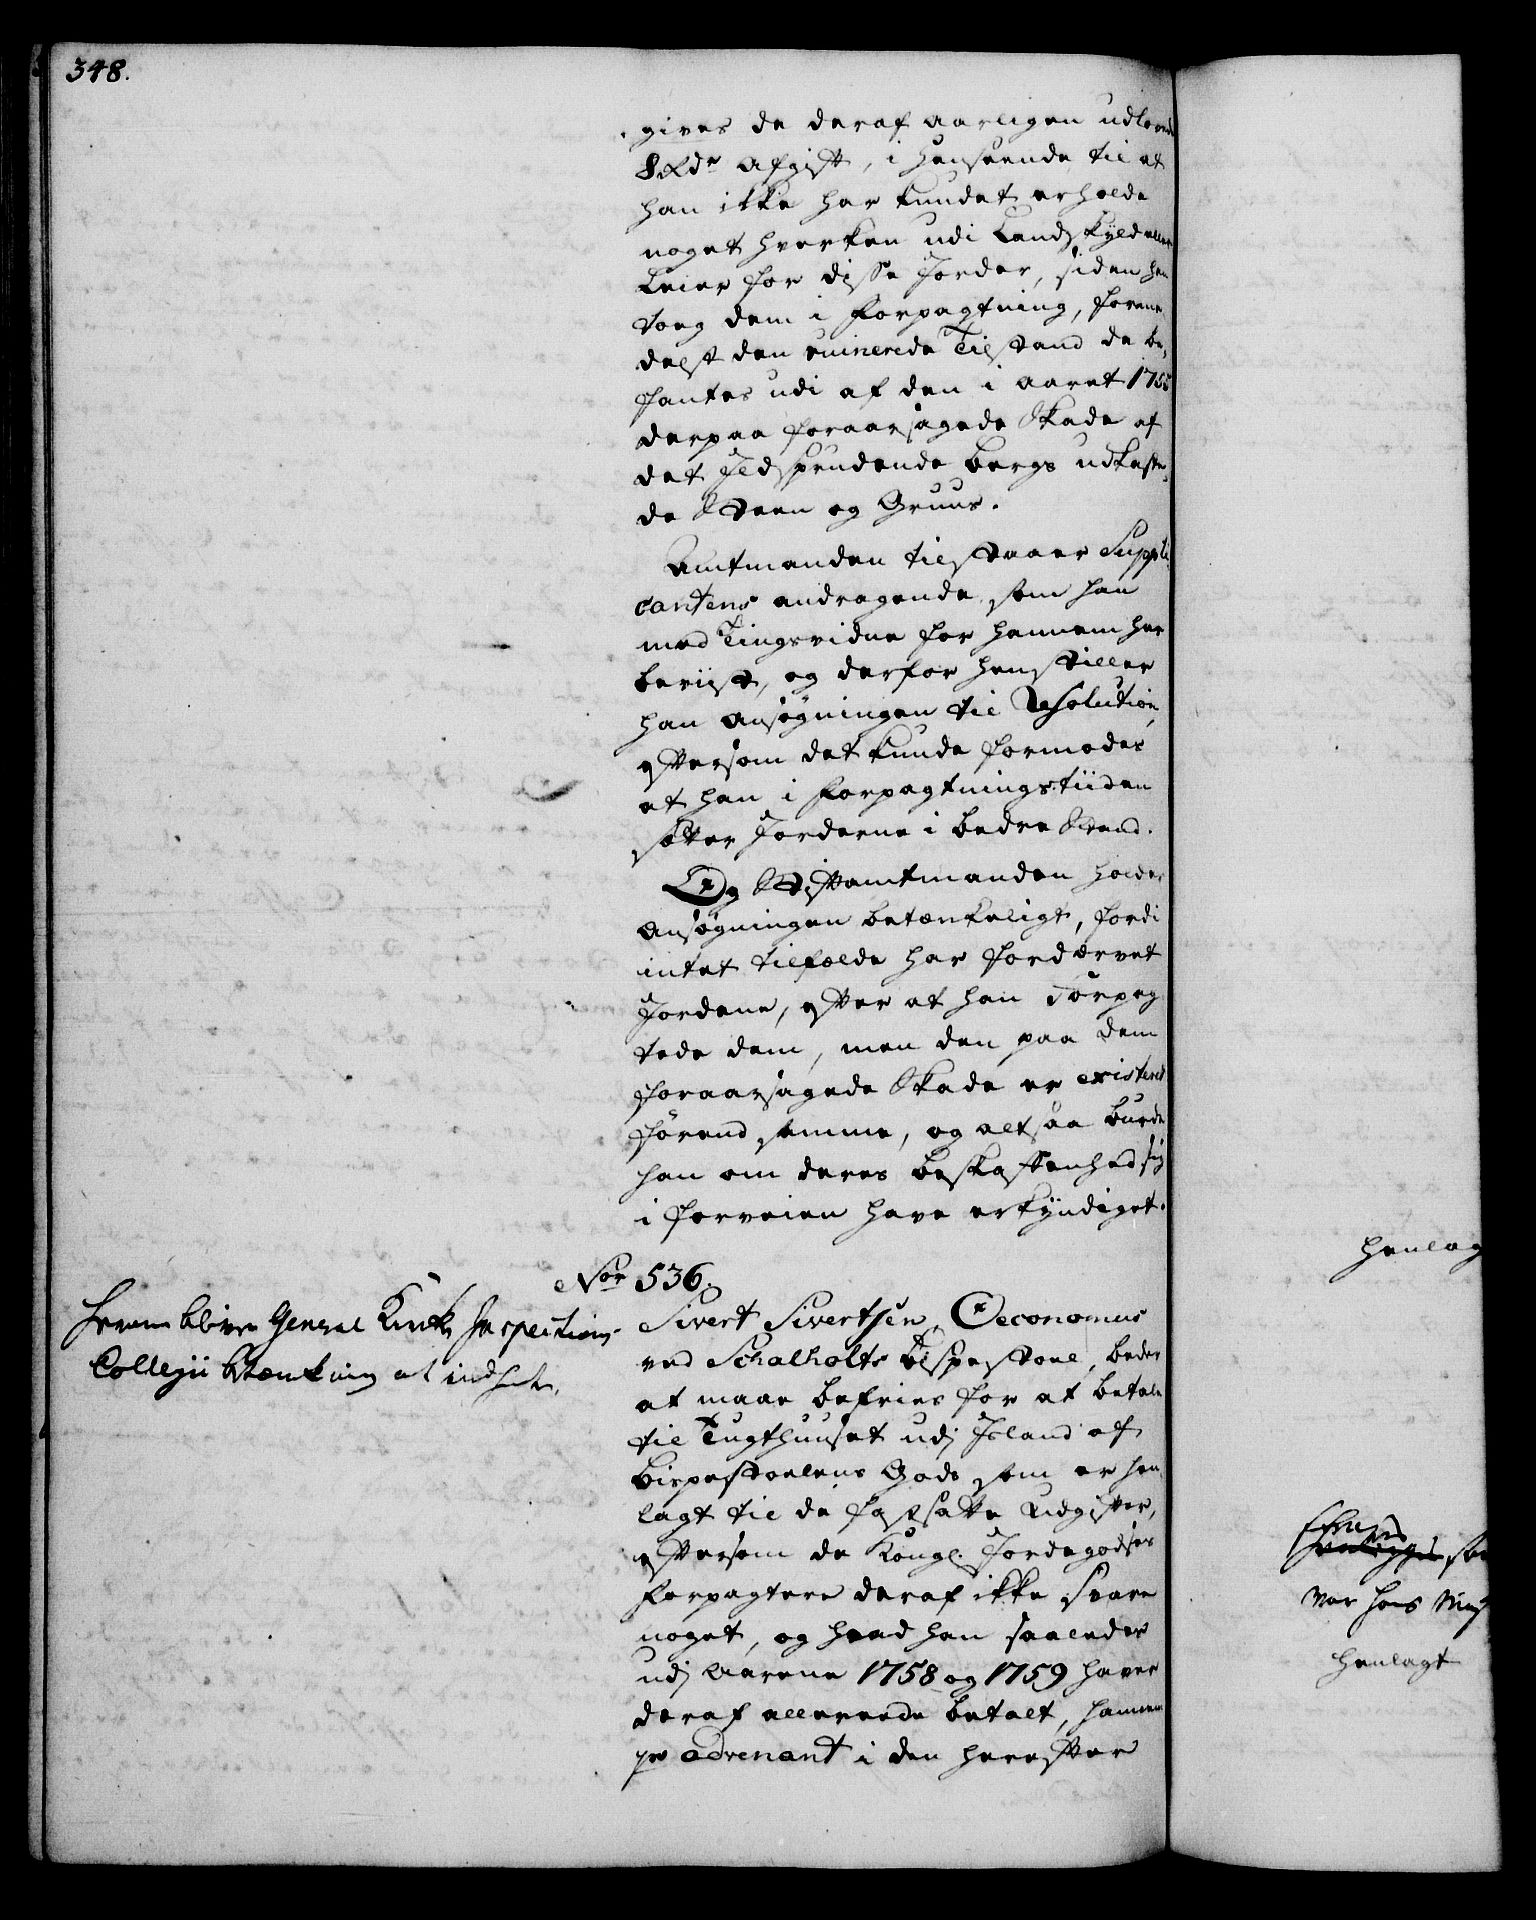 348.
gives de deraf aarligen udlovede
8 Rdr Afgift, i henseende til at
han ikke har kundet erholde
noget hverken udi Landskyld eller
Leier for disse Jorder, siden han
toeg dem i Forpagtning, forme-
delst den ruinerede Tilstand de be-
fantes udi af den i Aaret 1755
derpaa foraarsagede Skade af
det Jldsprudende bergs udkaste-
de Steen og Gruus.
Amtmanden tilstaaer Suppli-
cantens andragende som han
med Tingsvidne for hannem har
beviist, og derfor henstiller
han ansøgningen til Resolution,
eftersom det kunde formodes
at han i Forpagtningstiiden
sætter Jorderne i bedre Stand.
Og Stiftamtmanden holder
ansøgningen betænkeligt, fordi
intet tilfælde har fordærvet
Jordene, efter at han Forpag-
tede dem, men den paa dem
foraarsagede Skade er existered
førend samme, og altsaa burde
han om deres beskaffenhed sig
i forveien have erkyndiget.
Nor 536.
Sivert Sivertsen, Oeconomus
ved Schalholts Bispestoel, beder
at maae befries for at betale
til Tugthuuset udj Jsland af
Bispestoelens Gods som er hen-
lagt til de fastsatte Udgifter,
eftersom de Kongl. Jordegodses
Forpagtere deraf ikke svare
noget, og hvad han saaledes
udj Aarene 1758 og 1759 haver
deraf allereede betalt, hannem
pro adrenant i den herefter
Herom bliver General Kirke Inspections-
Collegii Betænkning at indhente.
henlag
var hans
henlagt